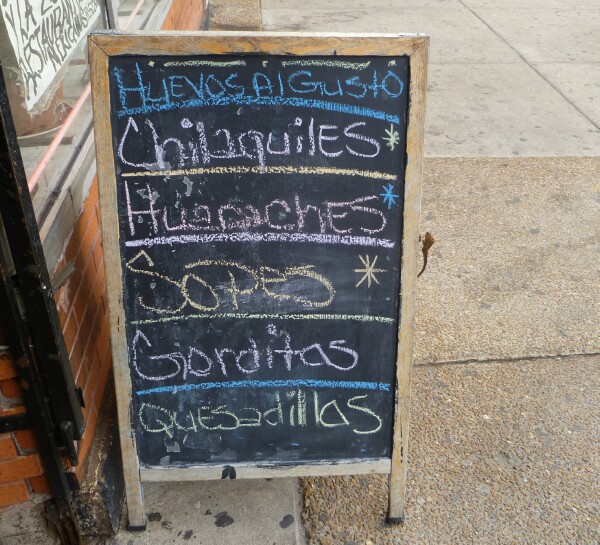 HUEVOS Al GUStO
ChilaquilES
HuarachES
SOPES
Gorditas
Quesadillas
RESTAURANT